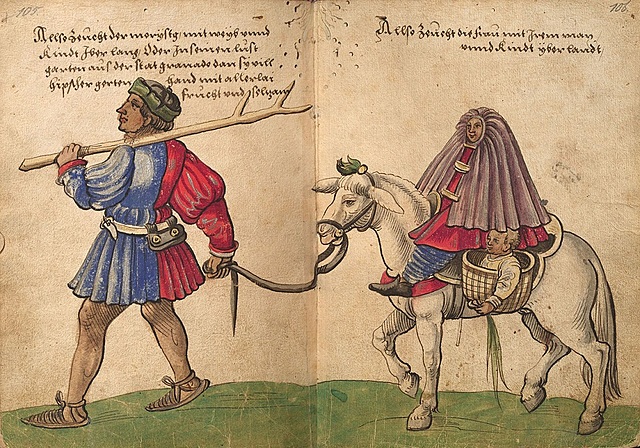 105.
Allso Zeucht der morysſg mit weyb vnnd
Kindt Jber lanḡ Oder Jn seinen lust
garten aus der stat granada dan sy vill
hipscher gerten hand mit allerlai
frucht vnd selzam
106.
Allso Zeucht die frau mit Jrem man
vnnd Kindt yber landt